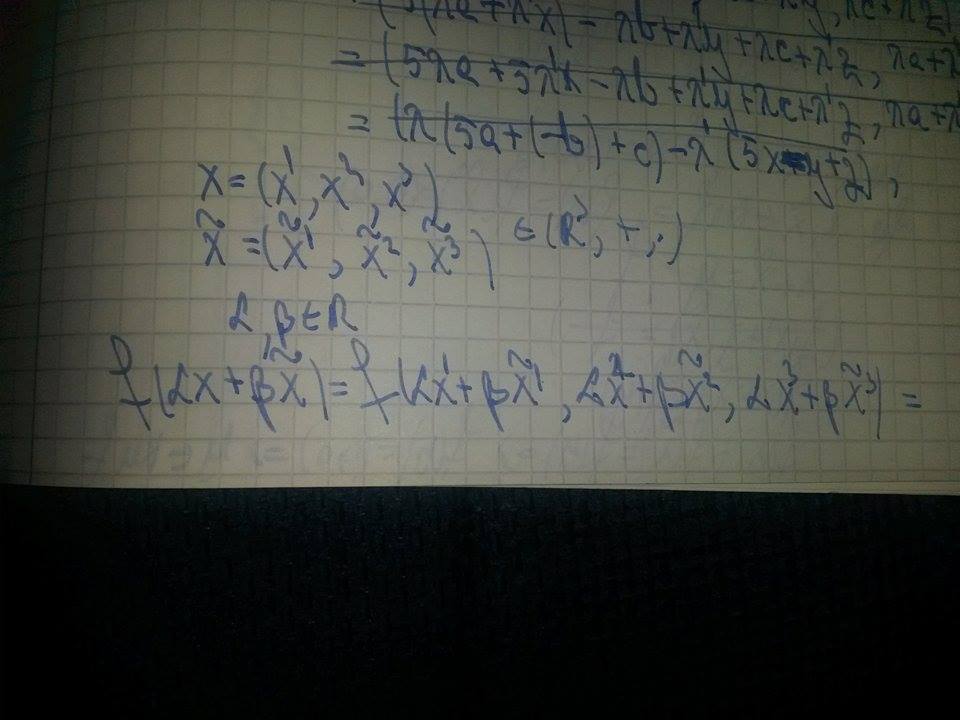 (5(λa+λ'x)-λb+λ'y+λc+λ'z,
= (5λa+5λ'x-λb+λ'y+λc+λ'z, λa+λ'
= (λ(5a+(-b)+c)-λ'(5x-y+z),
x=(x¹, x², x³)
x̃=(x̃¹, x̃², x̃³) ∈(R³,+,·)
α, β∈R
f(αx+βx̃)=f(αx¹+βx̃¹, αx²+βx̃², αx³+βx̃³)=